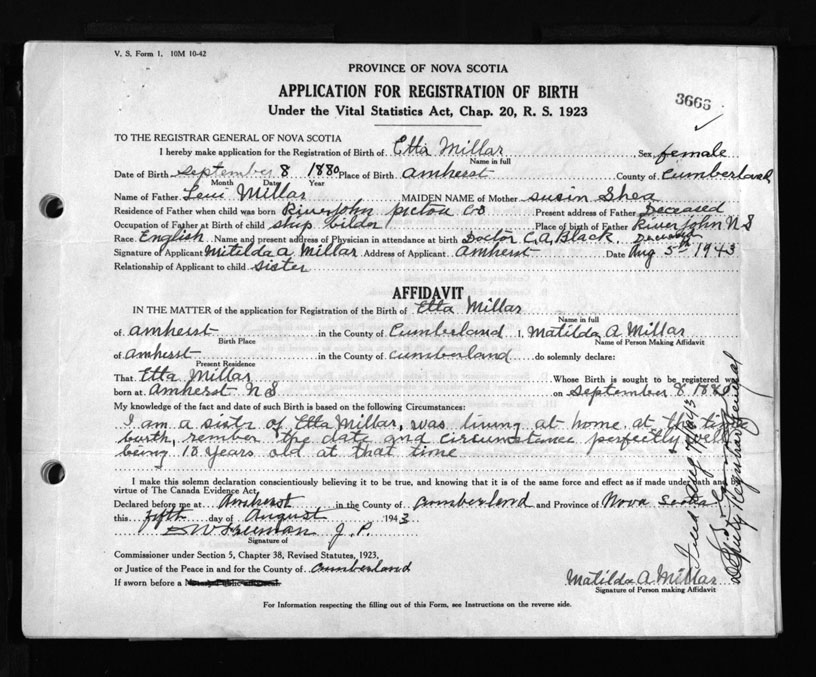 V. S. Form 1. 10M 10-42
PROVINCE OF NOVA SCOTIA
APPLICATION FOR REGISTRATION OF BIRTH
Under the Vital Statistics Act, Chap. 20, R. S. 1923
3666
TO THE REGISTRAR GENERAL OF NOVA SCOTIA
I hereby make application for the Registration of Birth of Etta Millar Sex female
Name in full
Date of Birth September 8 1880 Place of Birth Amherst County of Cumberland
Month Date Year
Name of Father Levi Millar MAIDEN NAME of Mother Susin Shea
Residence of Father when child was born Riverjohn pictou Co Present address of Father Deceased
Occupation of Father at Birth of child ship bildor Place of birth of Father Riverjohn N S
Race English Name and present address of Physician in attendance at birth Doctor C. A. Black. Deceased
Signature of Applicant Mitilda A Millar Address of Applicant Amherst Date Aug 5th 1943
Relationship of Applicant to child sister
AFFIDAVIT
IN THE MATTER of the application for Registration of the Birth of Etta Millar
Name in full
of amherst in the County of Cumberland I, Matilda A Millar
Birth Place Name of Person Making Affidavit
of amherst in the County of cumberland do solemnly declare:
Present Residence
That Etta Millar Whose Birth is sought to be registered was
born at Amherst N S on September 8 1880
My knowledge of the fact and date of such Birth is based on the following Circumstances:
I am a sister of Etta Millar, was living at home at the time
birth, rember the date and circumstance perfectly well
being 18 years old at that time
I make this solemn declaration conscientiously believing it to be true, and knowing that it is of the same force and effect as if made under oath and
virtue of The Canada Evidence Act,
Declared before me at Amherst in the County of Cumberland and Province of Nova Scotia
this fifth day of August 1943
J. P.
Signature of
Commissioner under Section 5, Chapter 38, Revised Statutes, 1923,
or Justice of the Peace in and for the County of Cumberland
If sworn before a
Matilda A Millar
Signature of Person making Affidavit
For Information respecting the filling out of this Form, see Instructions on the reverse side.
Deputy Registrar General